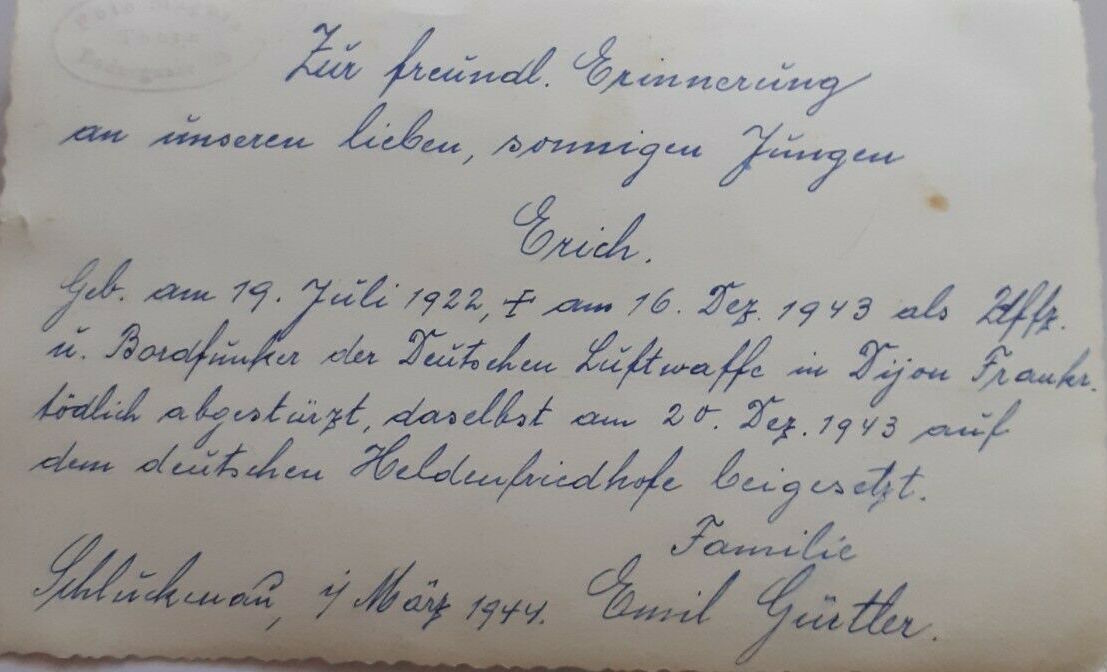 Zur freundl. Erinnerung
an unseren lieben, sonnigen Jungen
Erich.
Geb. am 19. Juli 1922, † am 16. Dez. 1943 als Uffz.
u. Bordfunker der Deutschen Luftwaffe in Dijon Frankr.
tödlich abgestürzt, daselbst am 20. Dez. 1943 auf
dem deutschen Heldenfriedhofe beigesetzt.
Familie
Schluckenau, i/ März 1944. Emil Gürtler.